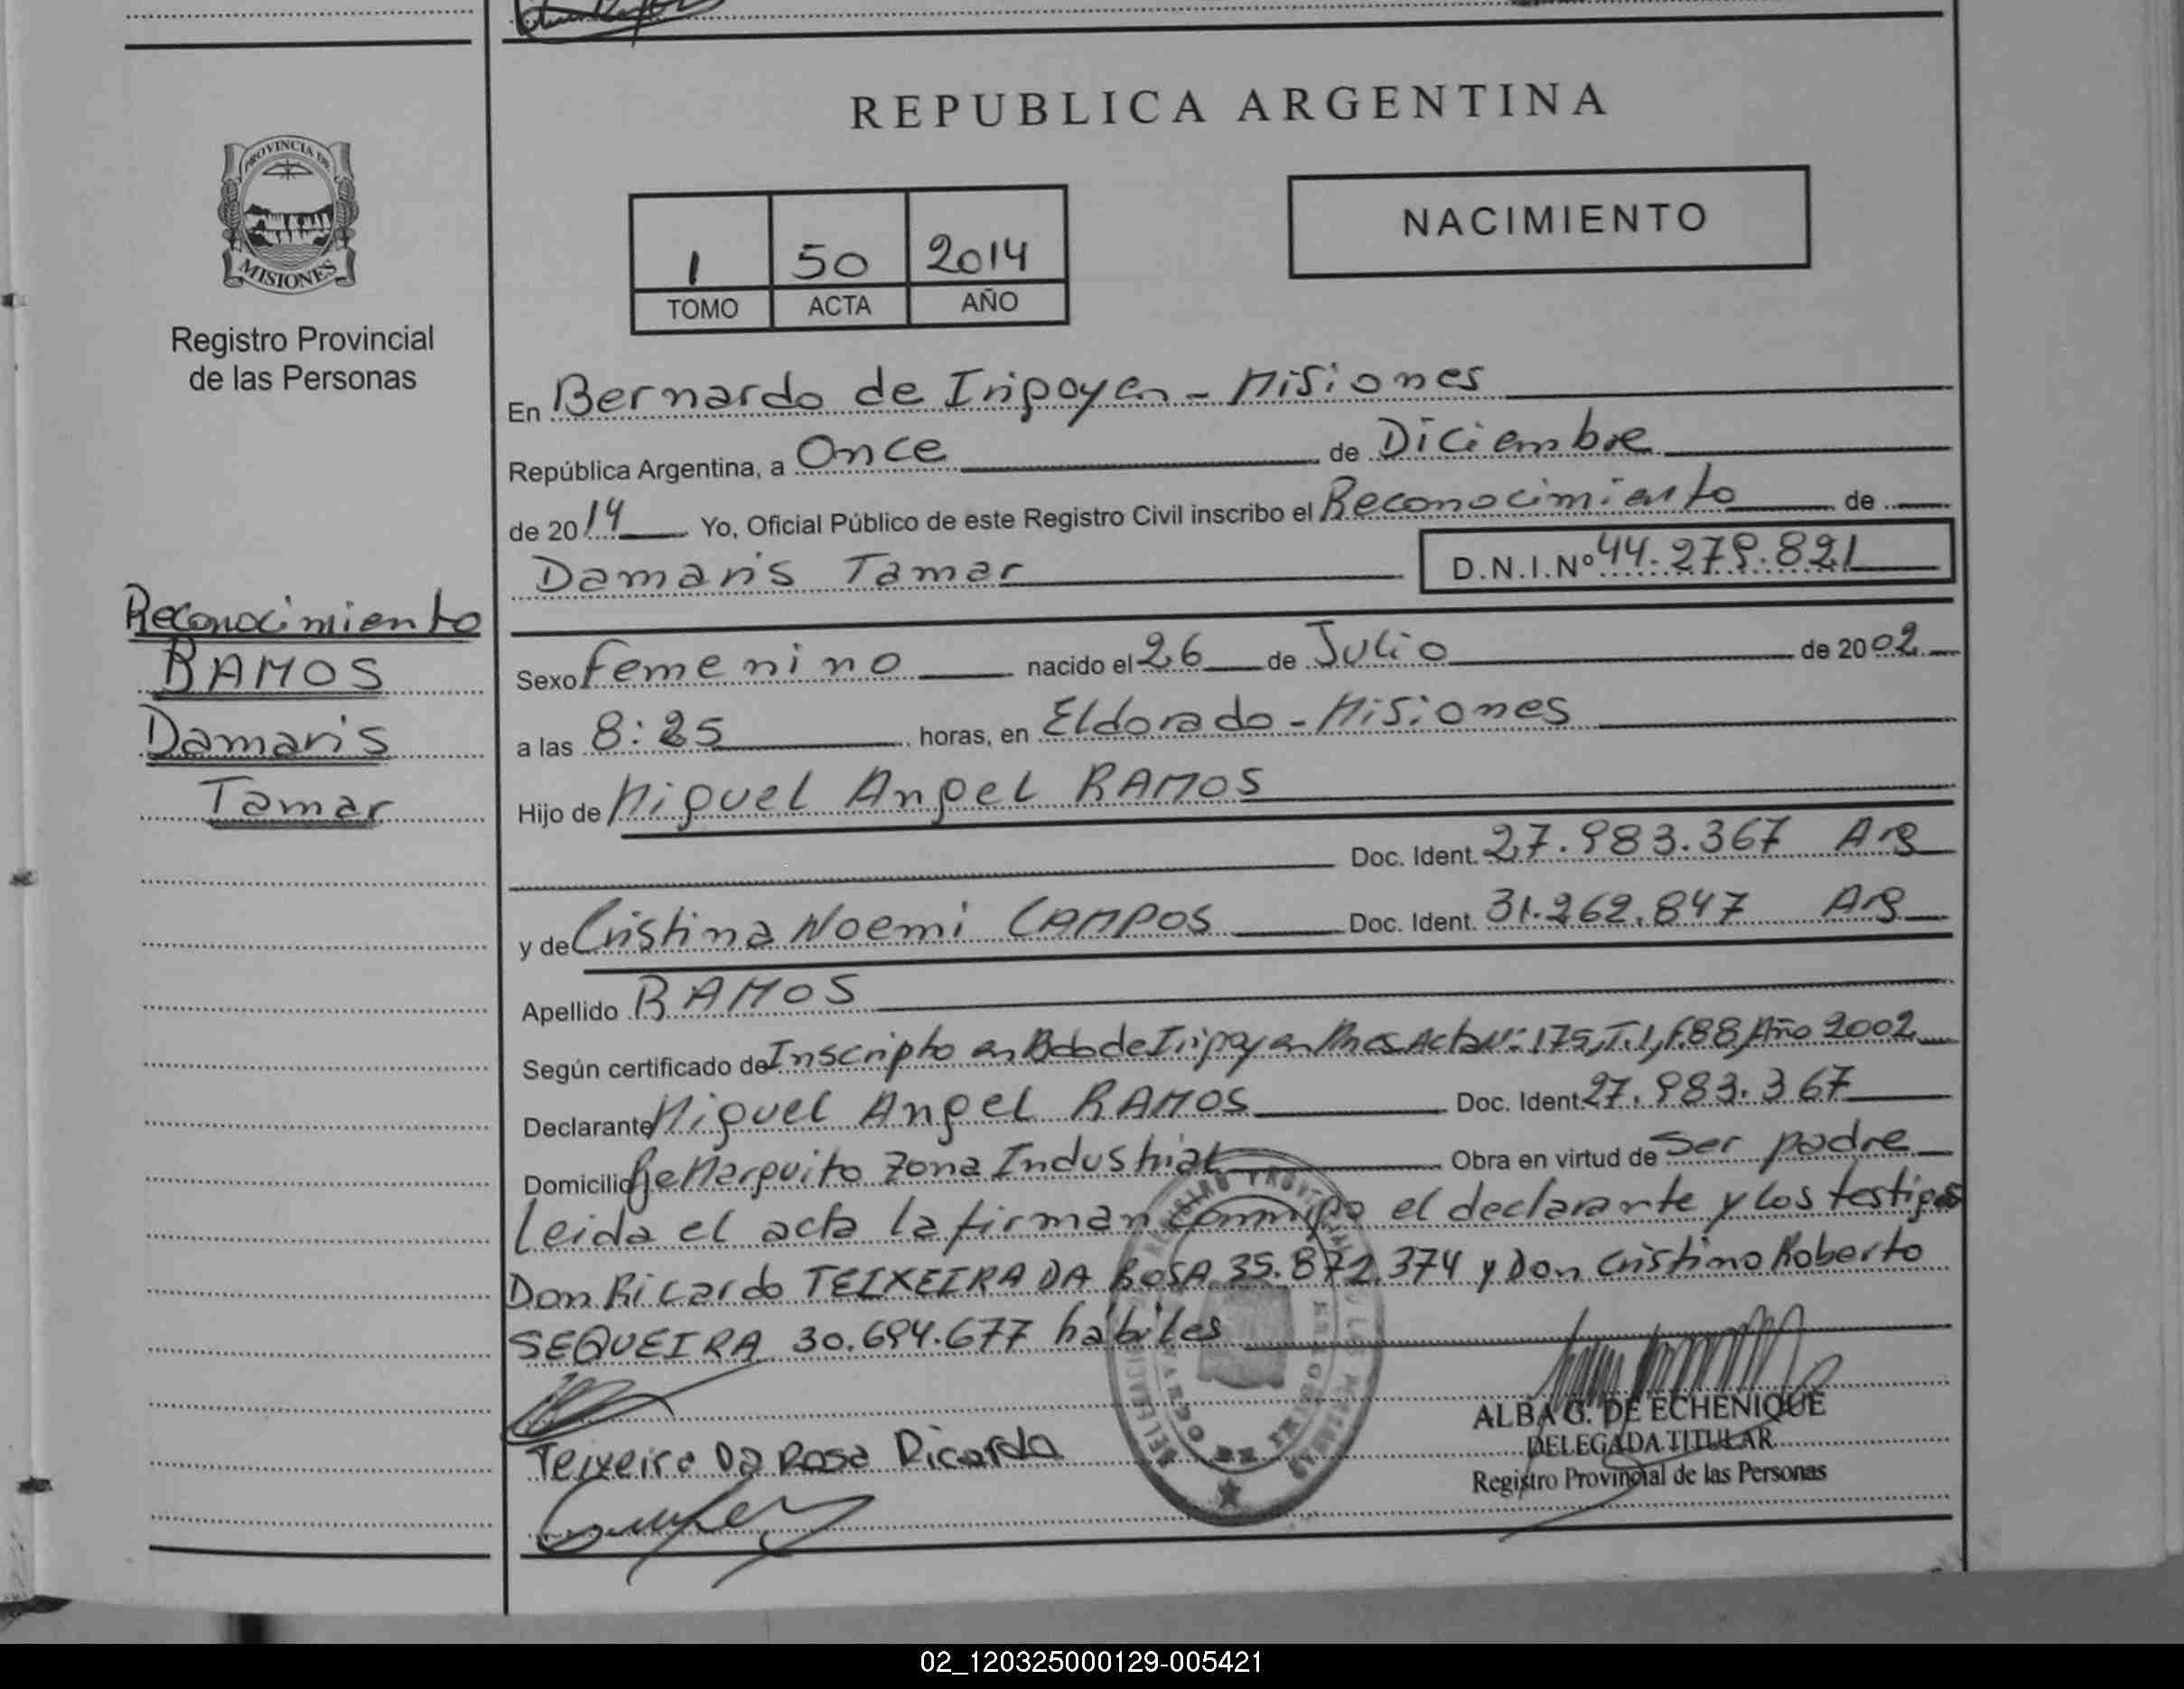 REPUBLICA ARGENTINA
PROVINCIA DE
MISIONES
Registro Provincial
de las Personas
NACIMIENTO
1 50 2014
TOMO ACTA AÑO
En Bernardo de Irigoyen - Misiones
República Argentina, a Once de Diciembre
de 2014 Yo, Oficial Público de este Registro Civil inscribo el Reconocimiento de
Damaris Tamar D.N.I.Nº 44.279.821
Reconocimiento
RAMOS
Damaris
Tamar
Sexo Femenino nacido el 26 de Julio de 2002
a las 8:25 horas, en Eldorado - Misiones
Hijo de Miguel Angel RAMOS
Doc. Ident. 27.983.367 Arg
y de Cristina Noemi CAMPOS Doc. Ident. 31.262.847 Arg
Apellido RAMOS
Según certificado de Inscripto en Bdo de Irigoyen Mnes Acta Nº: 175, T.1, f.88, Año 2002
Declarante Miguel Angel RAMOS Doc. Ident. 27.983.367
Domicilio Bº Marquito Zona Industrial Obra en virtud de Ser padre
Leida el acta la firman conmigo el declarante y los testigos
Don Ricardo TEIXEIRA DA ROSA 35.872.374 y Don Cristino Roberto
SEQUEIRA 30.694.677 hábiles
ALBA G. DE ECHENIQUE
DELEGADA TITULAR
Registro Provincial de las Personas
Teixeira Da Rosa Ricardo
02_120325000129-005421